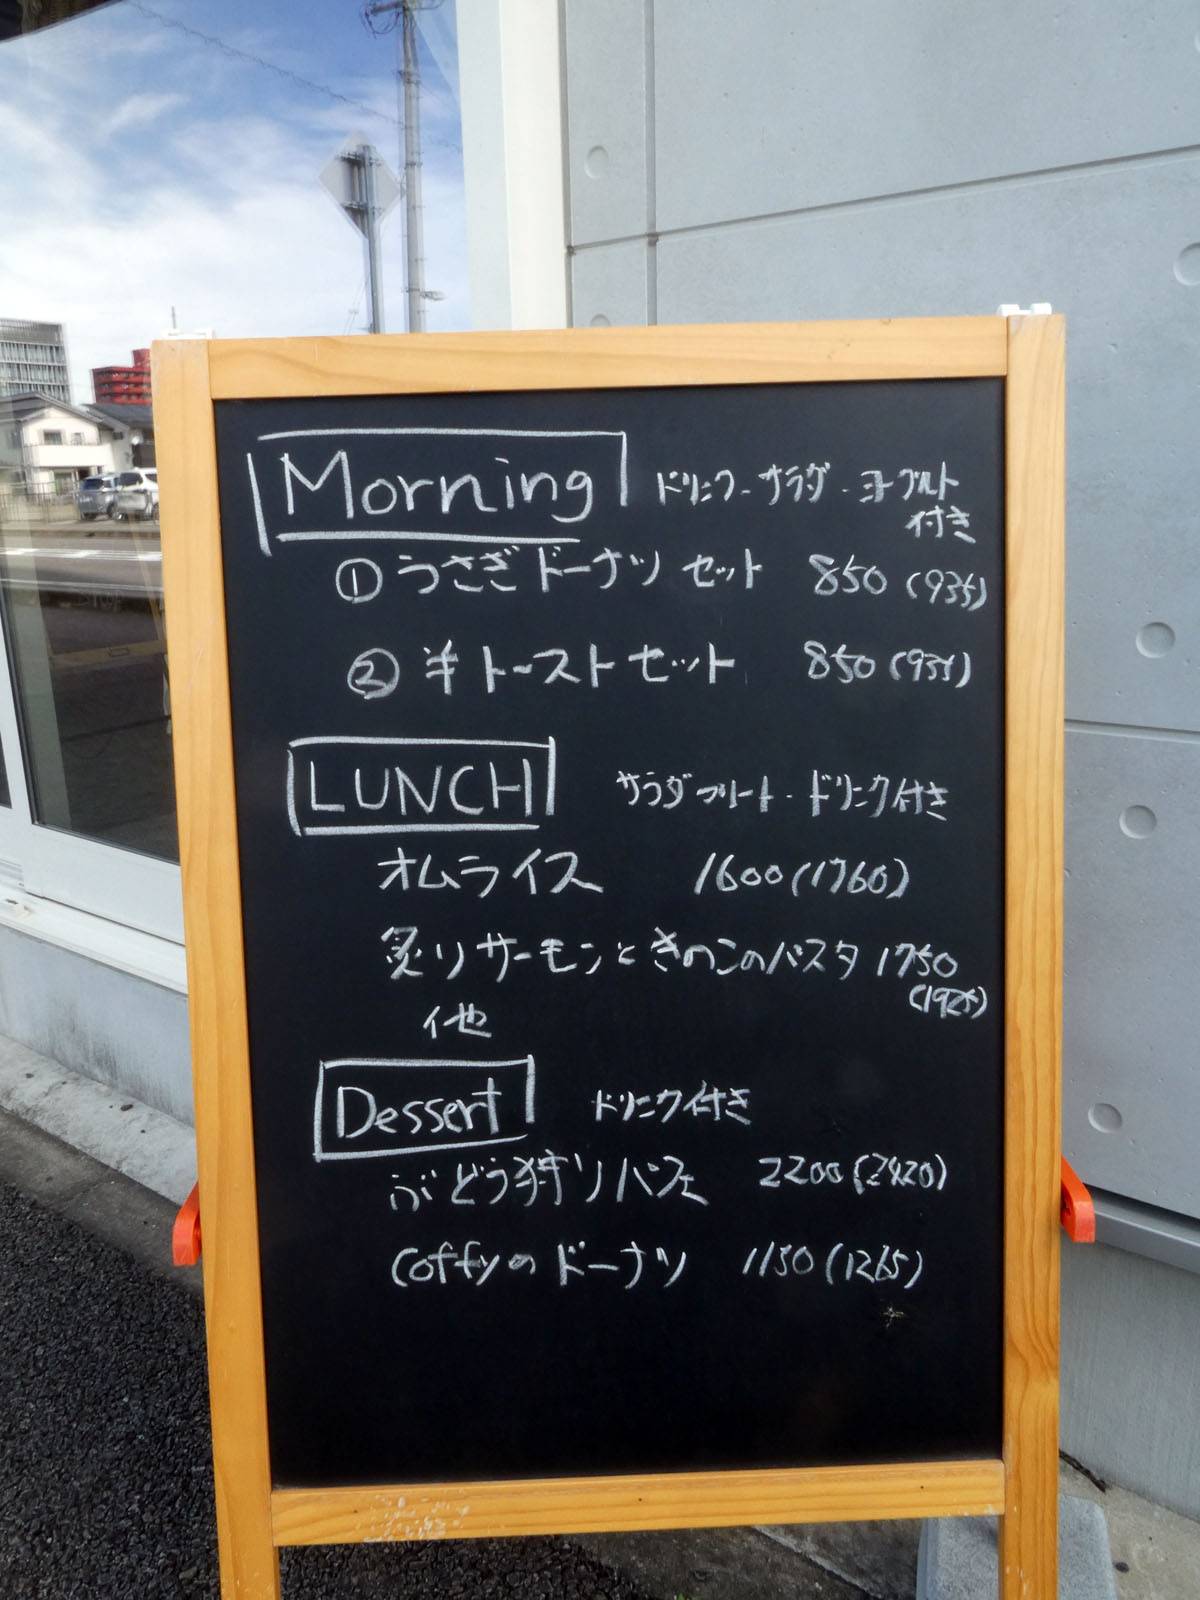 Morning ドリンク・サラダ・ヨーグルト
付き
① うさぎドーナツ セット 850 (935)
② 半トーストセット 850 (935)
LUNCH サラダプレート・ドリンク付き
オムライス 1600 (1760)
炙りサーモンときのこのパスタ 1750
(1925)
他
Dessert ドリンク付き
ぶどう狩りパフェ 2200 (2420)
Coffyのドーナツ 1150 (1265)